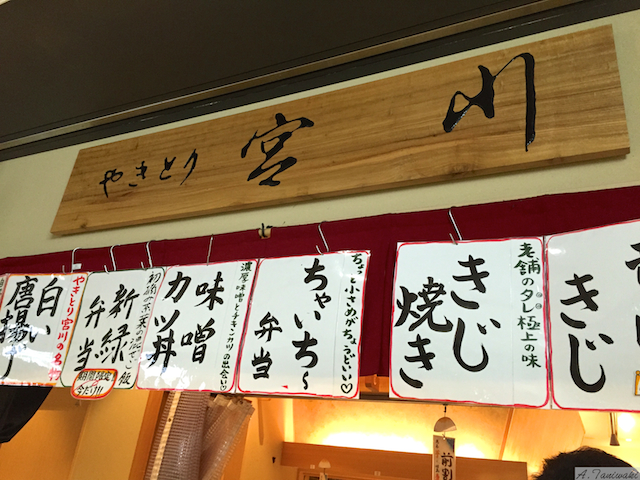 やきとり 宮川
白い
唐揚げ
やきとり宮川の名物
新緑
弁当
期間限定
今だけ!!
味噌
カツ丼
濃厚味噌とチキンカツの出会い♡
ちゃいち～
弁当
ちょっと小さめがちょうどいい♡
きじ
焼き
老舗のタレ極上の味
きじ
前割
A. Taniwaki